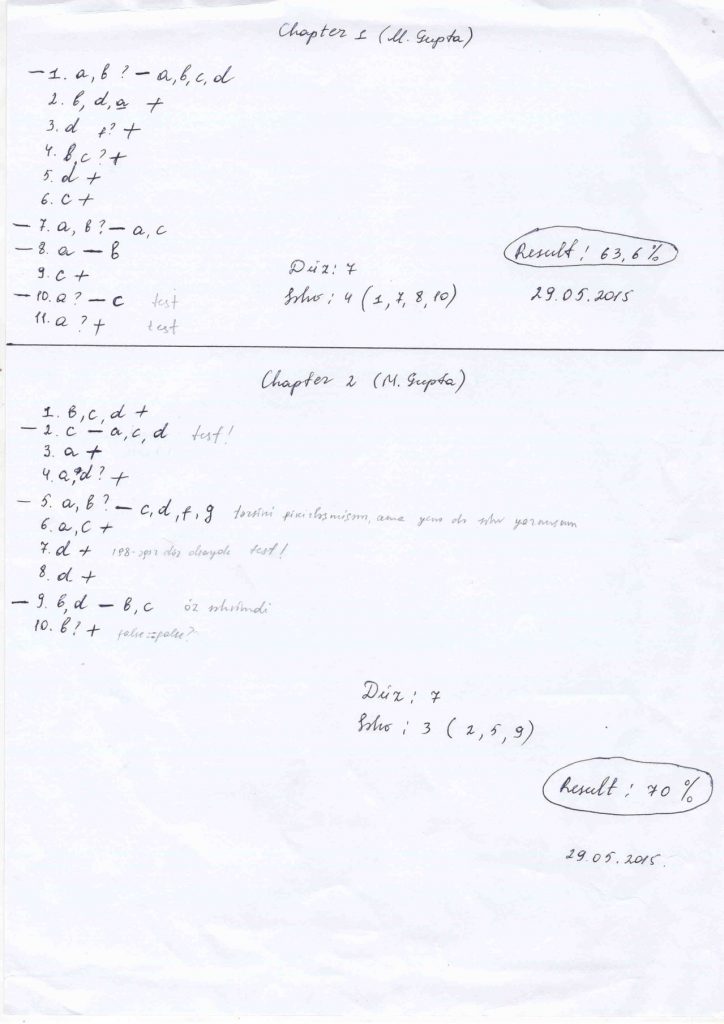 Chapter 1 (M. Gupta)
– 1. a, b ? – a, b, c, d
2. b, d, a +
3. d f? +
4. b, c ? +
5. d +
6. c +
– 7. a, b ? – a, c
– 8. a – b
9. c +
– 10. a ? – c test
11. a ? + test
Düz: 7
Səhv: 4 (1, 7, 8, 10)
Result: 63,6%
29.05.2015
Chapter 2 (M. Gupta)
1. b, c, d +
– 2. c – a, c, d test!
3. a +
4. a, d? +
– 5. a, b ? – c, d, f, g tərsini fikirləşmişəm, amma yenə də səhv yazmışam
6. a, c +
7. d + test!
8. d +
– 9. b, d – b, c öz səhvimdi
10. b? + false==false?
Düz: 7
Səhv: 3 (2, 5, 9)
Result: 70%
29.05.2015.